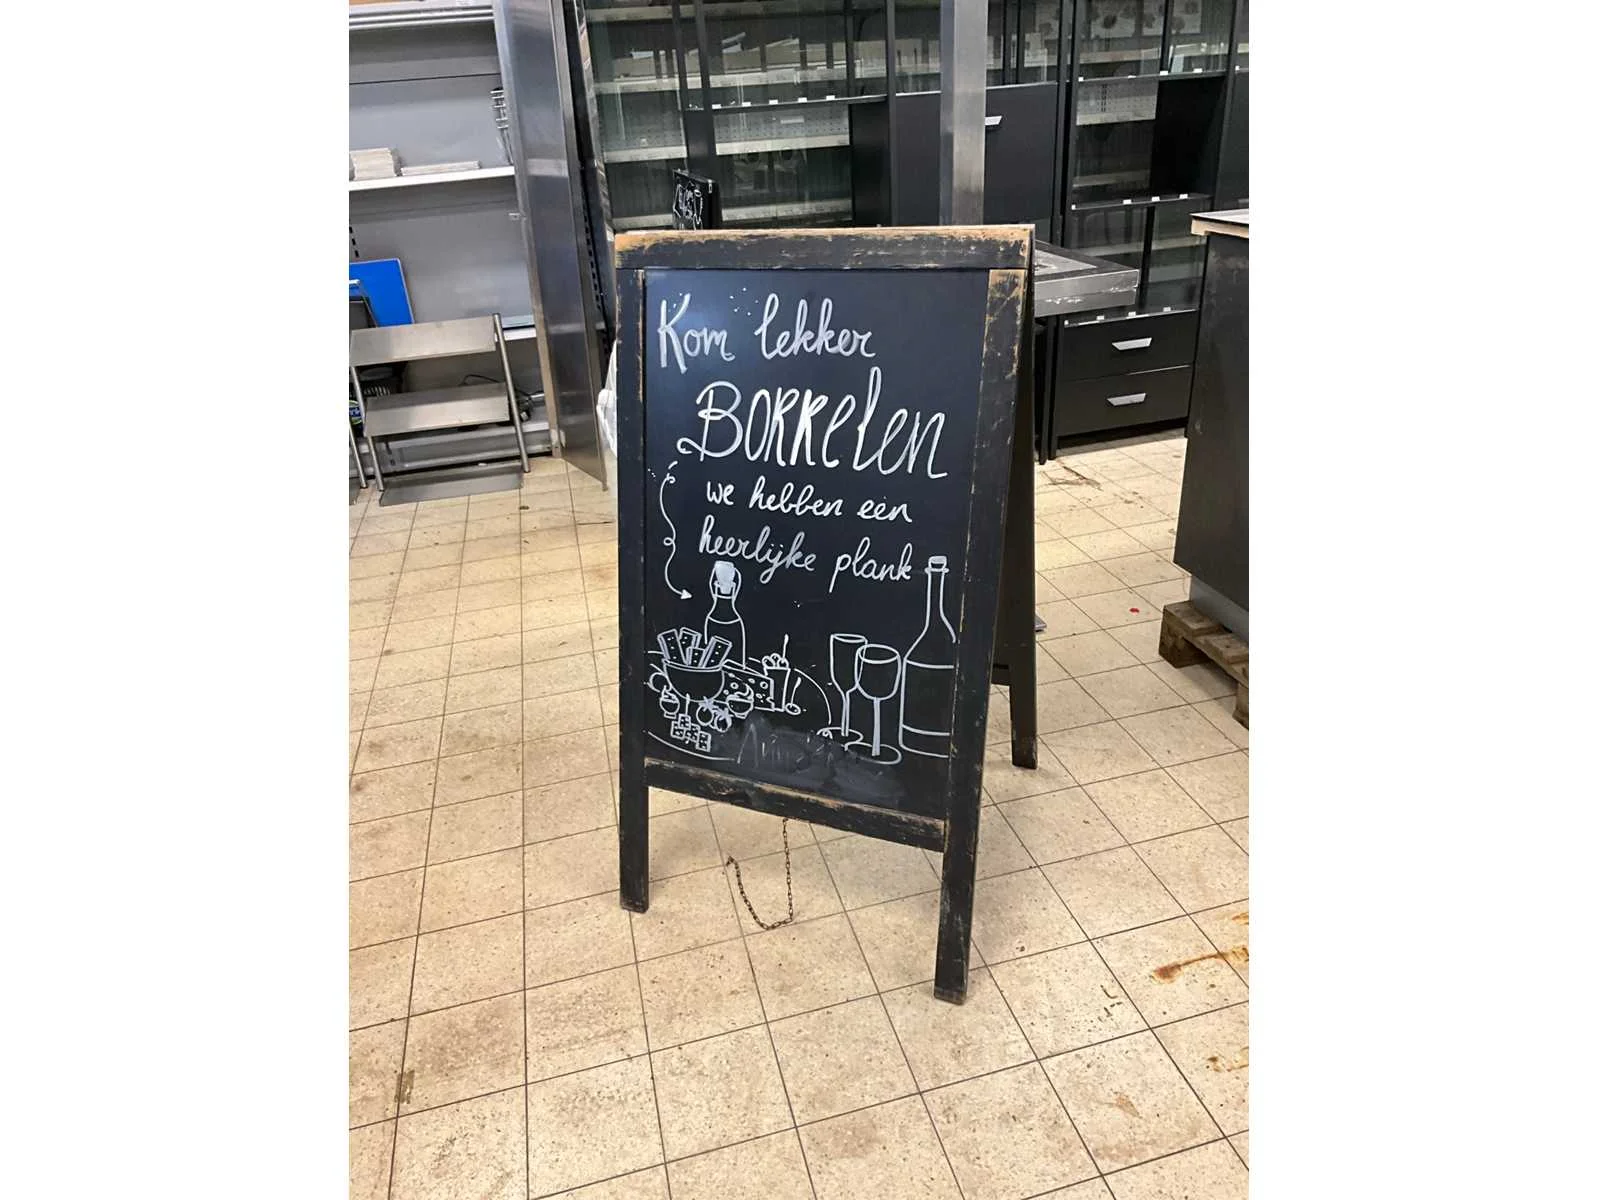 Kom lekker
BORRELEN
we hebben een
heerlijke plank